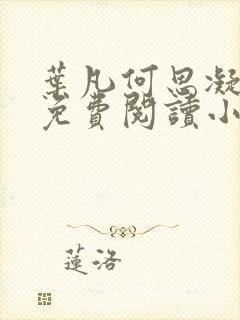 葉凡何思凝
免費閱讀小
蓮洛